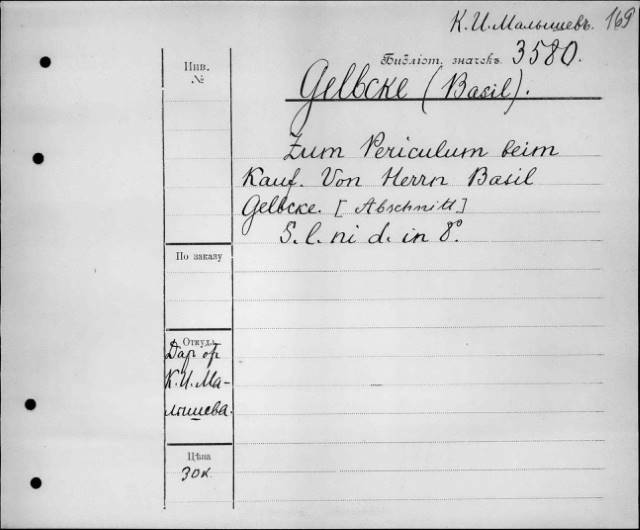 К. И. Малышевъ. 169
Библіот. значекъ 3580.
Инв.
№
Gelbcke (Basil).
Zum Periculum beim
Kauf. Von Herrn Basil
Gelbcke. [Abschnitt]
S. l. ni d. in 8º.
По заказу
Откуда
Дар от
К. И. Ма-
лышева.
Цѣна
30 к.